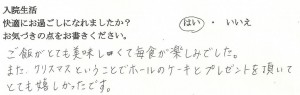 入院生活
快適にお過ごしになれましたか？ はい ・ いいえ
お気づきの点をお書きください。
ご飯がとても美味しくて毎食が楽しみでした。
また、クリスマスということでホールのケーキとプレゼントを頂いて
とても嬉しかったです。